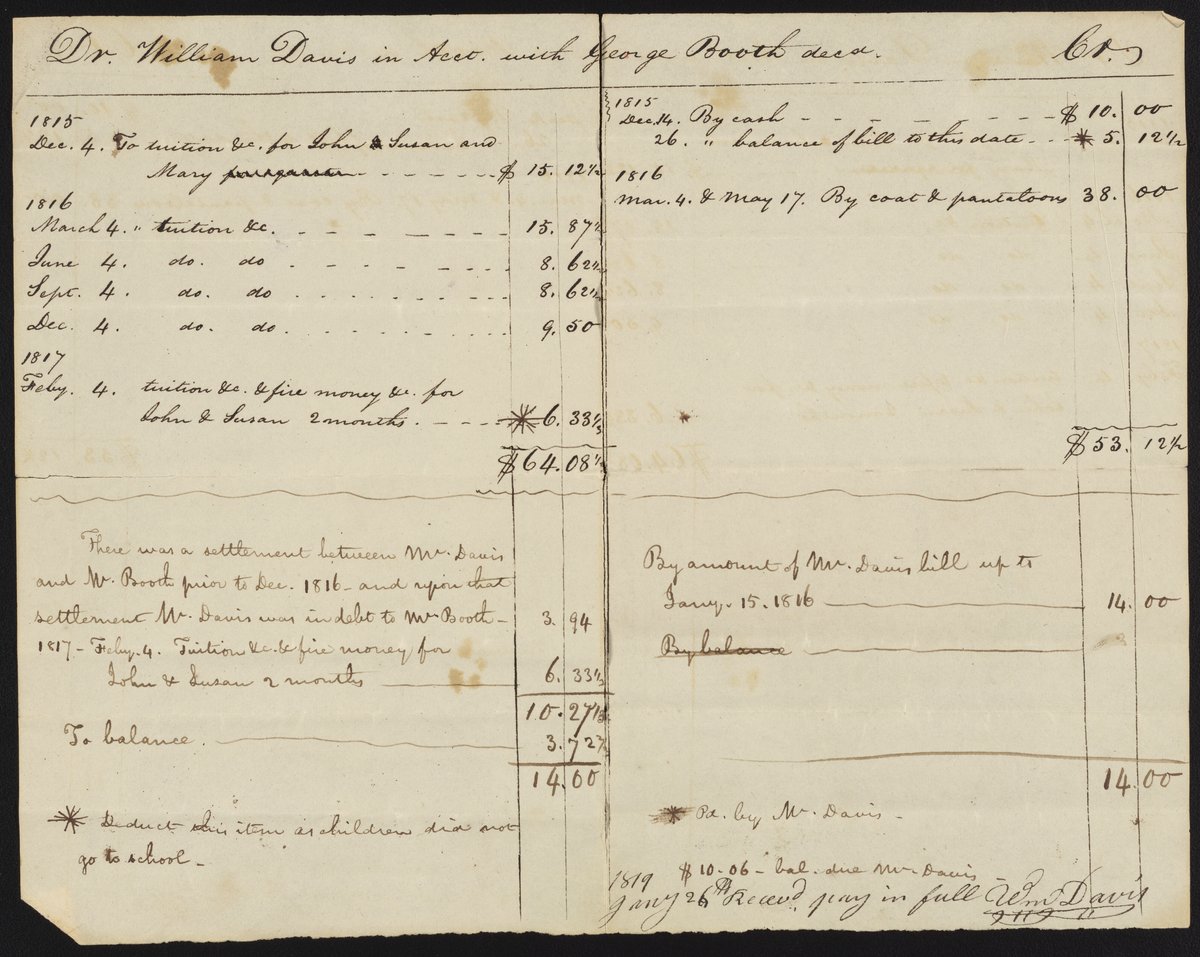 Dr. William Davis in Acct. with George Booth decd. Cr.
1815
Dec. 4. To tuition &c. for John & Susan and
Mary - - - - - - $ 15. 12 1/2
1816
March 4. " tuition &c. - - - - - - - 15. 87 1/2
June 4. do. do - - - - - - - 8. 62 1/2
Sept. 4. do. do - - - - - - - 8. 62 1/2
Dec. 4. do. do - - - - - - - 9. 50
1817
Feby. 4. tuition &c. & fire money &c. for
John & Susan 2 months. - - - - * 6. 33 1/3
$64. 08 1/3
There was a settlement between Mr. Davis
and Mr. Booth prior to Dec. 1816 - and upon that
settlement Mr. Davis was in debt to Mr Booth - 3. 94
1817 - Feby. 4. Tuition &c. & fire money for
John & Susan 2 months 6. 33 1/3
10. 27 1/3
To balance. 3. 72 2/3
14. 00
* Deduct this item as children did not
go to school -
1815
Dec. 14. By cash - - - - - - - $ 10. 00
26. " balance of bill to this date - - * 5. 12 1/2
1816
Mar. 4. & May 17. By coat & pantaloons 38. 00
$ 53. 12 1/2
By amount of Mr. Davis bill up to
Jany. 15. 1816 14. 00
By balance
14. 00
* Pd. by Mr. Davis -
$ 10-06 - bal. due Mr. Davis
1819
Jany 26th Receevd pay in full Wm Davis